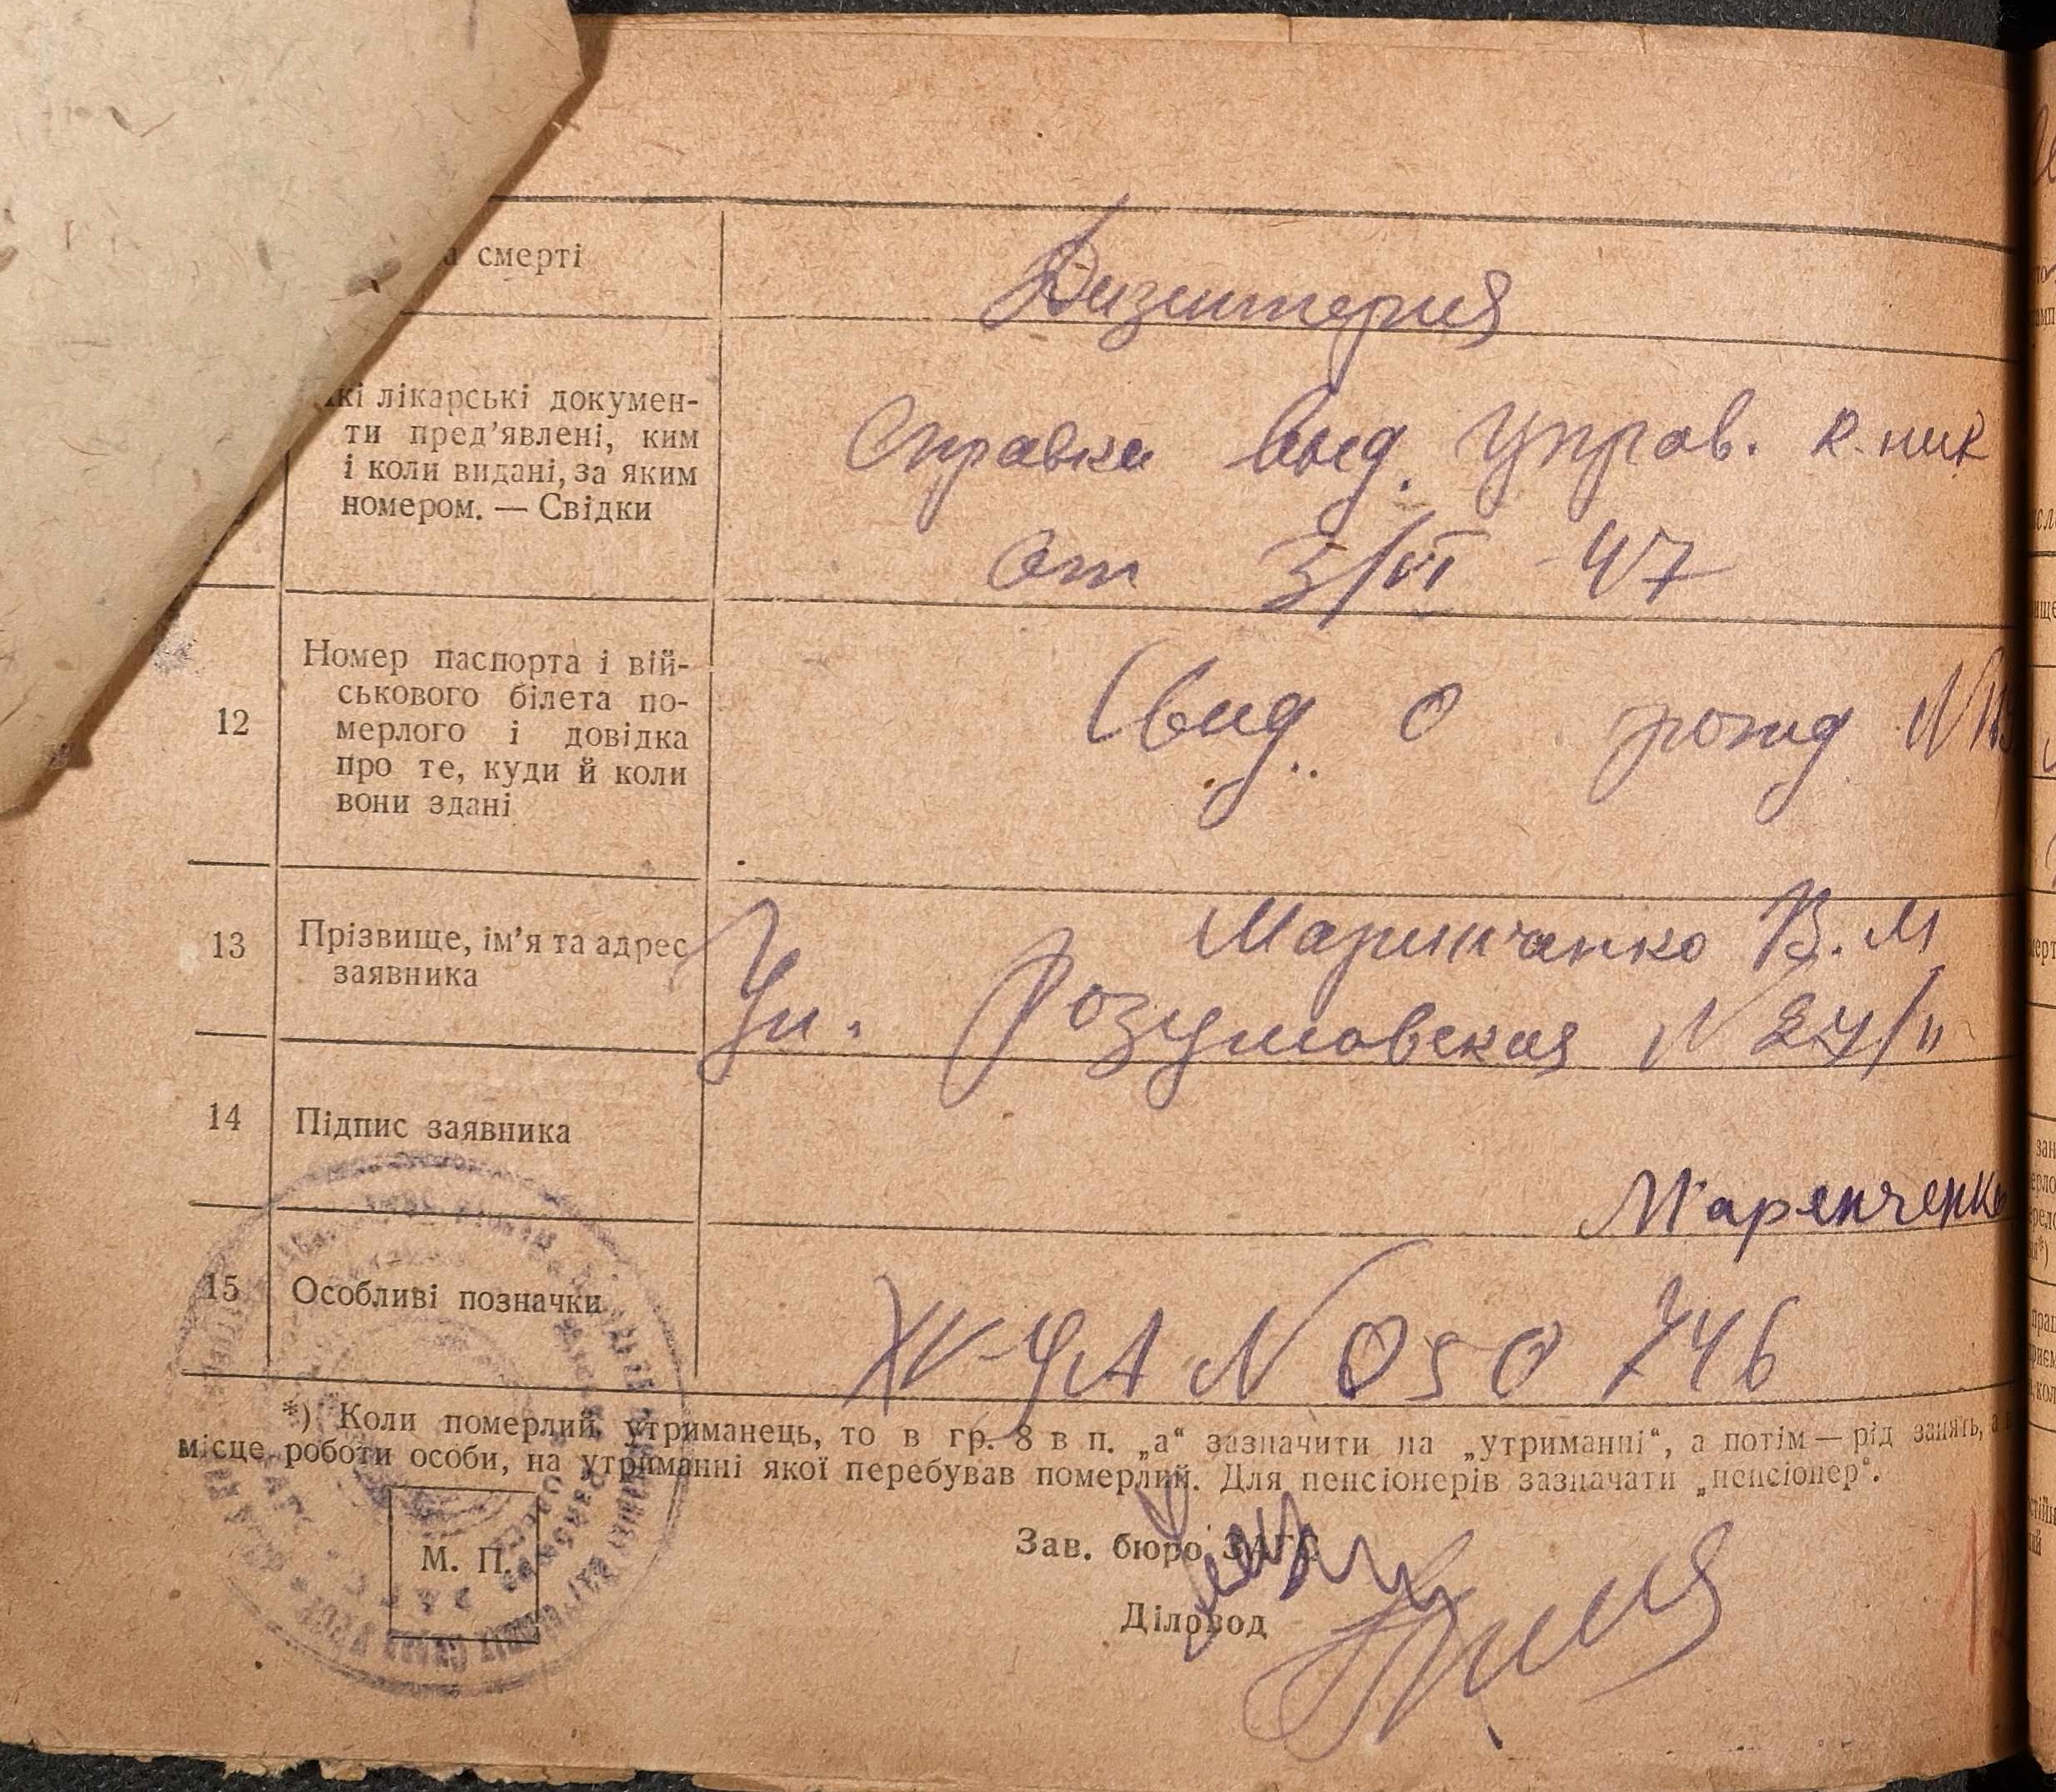 смерті
Дизентерия
лікарські докумен-
ти пред'явлені, ким
і коли видані, за яким
номером. — Свідки
Справка выд. Управ. к-ник
от 3/VI - 47
12
Номер паспорта і вій-
ськового білета по-
мерлого і довідка
про те, куди й коли
вони здані
Свид. о рожд N
13
Прізвище, ім'я та адрес
заявника
Маринчанко В. М
Ул. Розумовская N 24/11
14
Підпис заявника
Маренченко
15
Особливі позначки
IV-УА N 050746
*) Коли померлий утриманець, то в гр. 8 в п. „а“ зазначити на „утриманні“, а потім — рід занять,
місце роботи особи, на утриманні якої перебував померлий. Для пенсіонерів зазначати „пенсіонер“.
М. П.
Зав. бюро ЗАГС
Діловод